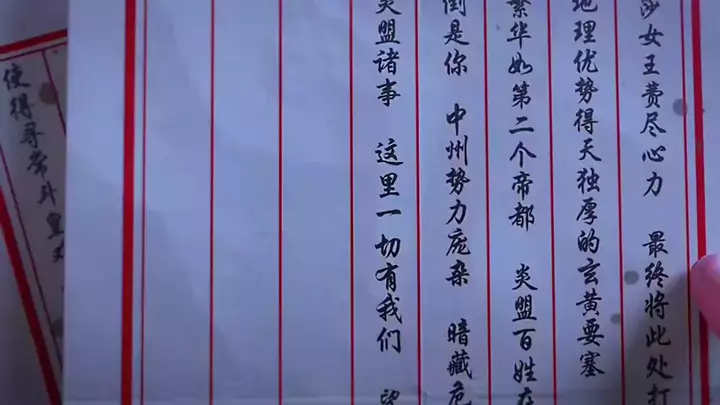 莎女王费尽心力 最终将此处打
地理优势得天独厚的玄黄要塞
繁华如第二个帝都 炎盟百姓在
倒是你 中州势力庞杂 暗藏危
炎盟诸事 这里一切有我们 望
使得寻常斗皇